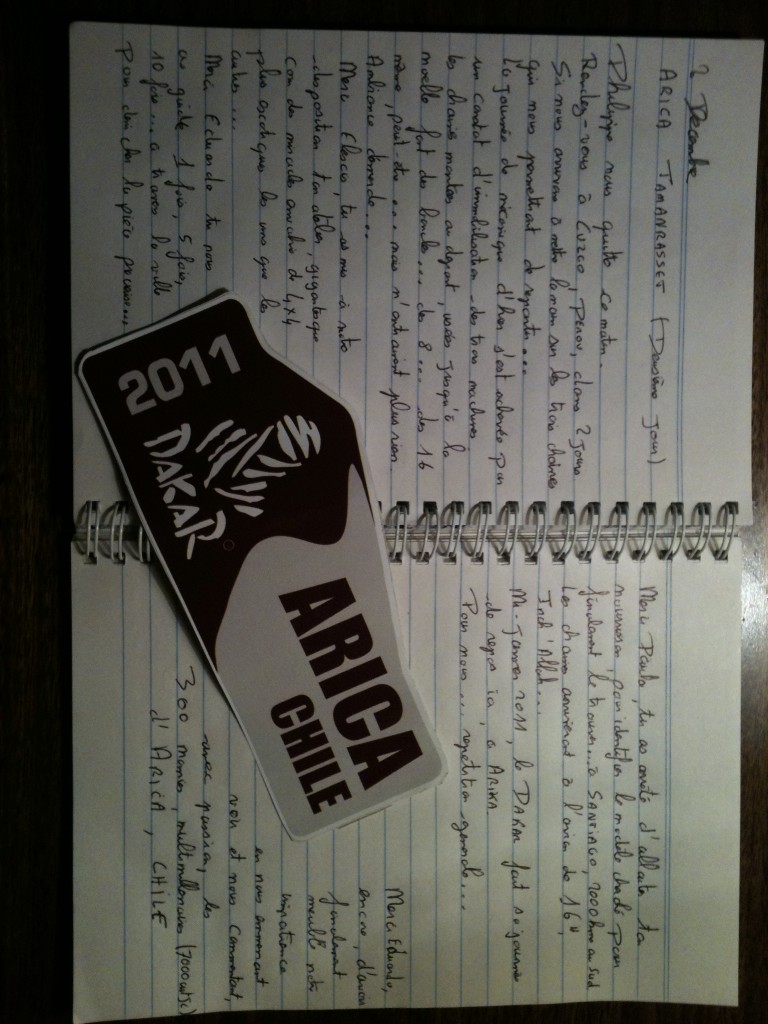 2 Decembre
ARICA TAMANRASSET (Deuxième Jour)
Philippe nous quitte ce matin.
Rendez-vous à CUZCO, PEROU, dans 2 Jours
Si nous arrivons à mettre la main sur les trois chaînes
qui nous permettront de repartir...
La Journée de mécanique d'hier s'est achevée par
un constat d'immobilisation des trois machines
les chaines montées au départ, usées jusqu'à la
moelle font des boucles... des 8... des 16
même, peut-être... mais n'entrainent plus rien.
Ambiance
Merci Elesio, tu as mis à notre
disposition ton atelier, gigantesque
con des
plus exotiques les uns que les
autres...
Merci Eduardo tu nous
as guidé 1 fois, 5 fois,
10 fois... a travers la ville
pour dénicher la pièce précieuse...
Merci Paulo, tu as arrêté d'allaiter ta
pour identifier le modèle pour
finalement le trouver... à SANTIAGO, 2000 km au sud
Les chaines arriveront à l'avion de 16H,
Inch'Allah...
Mi-Janvier 2011, le DAKAR fait sa journée
de repos ici, à ARIKA.
Pour nous... répétition générale...
Merci Eduardo,
encore, d'avoir
finalement
meublé notre
impatience
en nous emmenant
voir et nous commentant,
avec passion, les
300 momies, multimillénaires (7000
d'ARICA, CHILE
2011
DAKAR
ARICA
CHILE